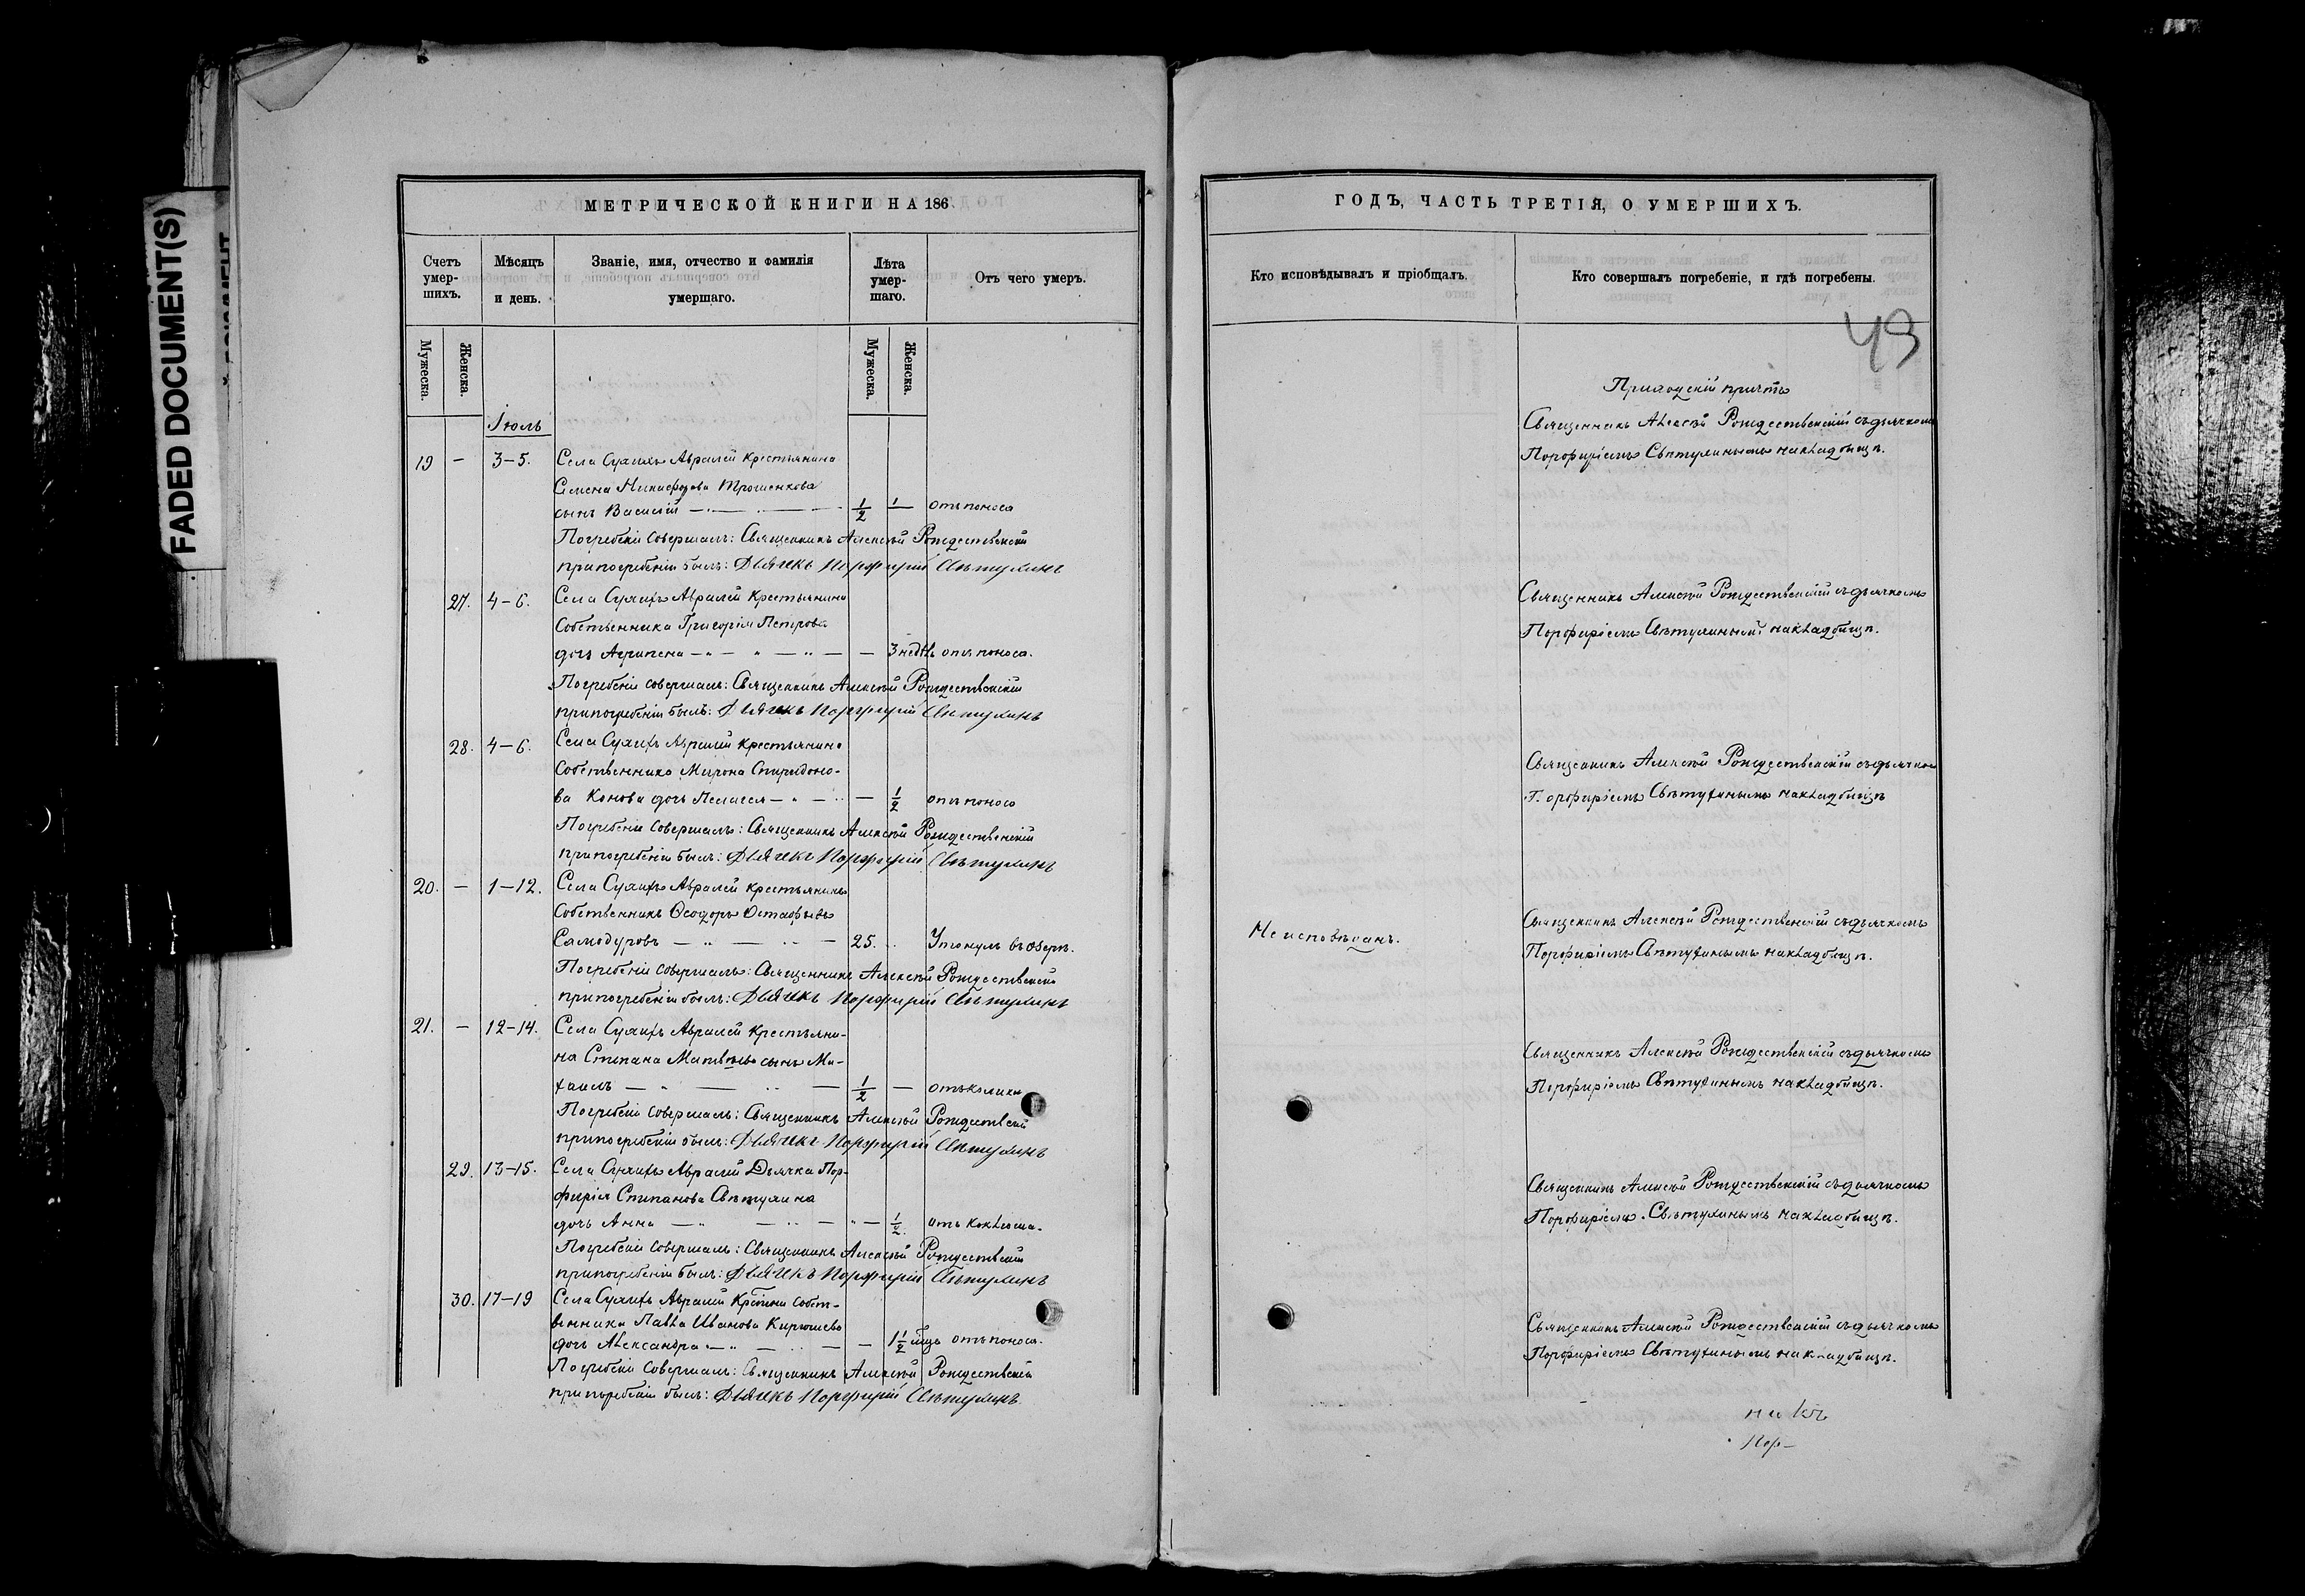 FADED DOCUMENT(S)
МЕТРИЧЕСКОЙ КНИГИ НА 186
Счетъ умер-шихъ.
Мѣсяцъ и день.
Званіе, имя, отчество и фамилія умершаго.
Лѣта умер-шаго.
Отъ чего умеръ.
Мужеска.
Женска.
Мужеска.
Женска.
Іюль
19 — 3–5. Села Сухихъ Авралей крестьянина
Семена Никифорова Трошенкова
сынъ Василій — 1/2 — отъ поноса
Погребеніе совершалъ: Священникъ Алексѣй Рождественскій
при погребеніи былъ: Дьячекъ Порфирій Свѣтухинъ
27. 4–6. Села Сухихъ Авралей крестьянина
Собственника Григорія Петрова
дочь Агрипена — — 3 недѣль отъ поноса.
Погребеніе совершалъ: Священникъ Алексѣй Рождественскій
при погребеніи былъ: Дьячекъ Порфирій Свѣтухинъ
28. 4–6. Села Сухихъ Авралей крестьянина
Собственника Мирона Спиридоно-
ва Конова дочь Пелагея — — 1/2 отъ поноса
Погребеніе совершалъ: Священникъ Алексѣй Рождественскій
при погребеніи былъ: Дьячекъ Порфирій Свѣтухинъ
20. — 1–12. Села Сухихъ Авралей крестьянинъ
Собственникъ Ѳеодоръ Остафьевъ
Самодуровъ — 25. Утонулъ въ озерѣ.
Погребеніе совершалъ: Священникъ Алексѣй Рождественскій
при погребеніи былъ: Дьячекъ Порфирій Свѣтухинъ
21. — 12–14. Села Сухихъ Авралей крестьяни-
на Степана Матвѣева сынъ Ми-
хаилъ — 1/2 — отъ колики
Погребеніе совершалъ: Священникъ Алексѣй Рождественскій
при погребеніи былъ: Дьячекъ Порфирій Свѣтухинъ
29. 13–15. Села Сухихъ Авралей Дьячка Пор-
фирія Степанова Свѣтухина
дочь Анна — — 1/2. отъ коклюша.
Погребеніе совершалъ: Священникъ Алексѣй Рождественскій
при погребеніи былъ: Дьячекъ Порфирій Свѣтухинъ
30. 17–19 Села Сухихъ Авралей Крестьянина собст-
венника Павла Иванова Кирюшева
дочь Александра — — 1 1/2 мца отъ поноса.
Погребеніе совершалъ: Священникъ Алексѣй Рождественскій
при погребеніи былъ: Дьячекъ Порфирій Свѣтухинъ.
ГОДЪ, ЧАСТЬ ТРЕТІЯ, О УМЕРШИХЪ.
Кто исповѣдывалъ и пріобщалъ.
Кто совершалъ погребеніе, и гдѣ погребены.
43
Приходскій причтъ
Священникъ Алексѣй Рождественскій съ дьячкомъ
Порфиріемъ Свѣтухинымъ на кладбищѣ.
Священникъ Алексѣй Рождественскій съ дьячкомъ
Порфиріемъ Свѣтухинымъ на кладбищѣ.
Священникъ Алексѣй Рождественскій съ дьячкомъ
Порфиріемъ Свѣтухинымъ на кладбищѣ
Не исповѣданъ.
Священникъ Алексѣй Рождественскій съ дьячкомъ
Порфиріемъ Свѣтухинымъ на кладбищѣ.
Священникъ Алексѣй Рождественскій съ дьячкомъ
Порфиріемъ Свѣтухинымъ на кладбищѣ.
Священникъ Алексѣй Рождественскій съ дьячкомъ
Порфиріемъ Свѣтухинымъ на кладбищѣ.
Священникъ Алексѣй Рождественскій съ дьячкомъ
Порфиріемъ Свѣтухинымъ на кладбищѣ.
Пор–